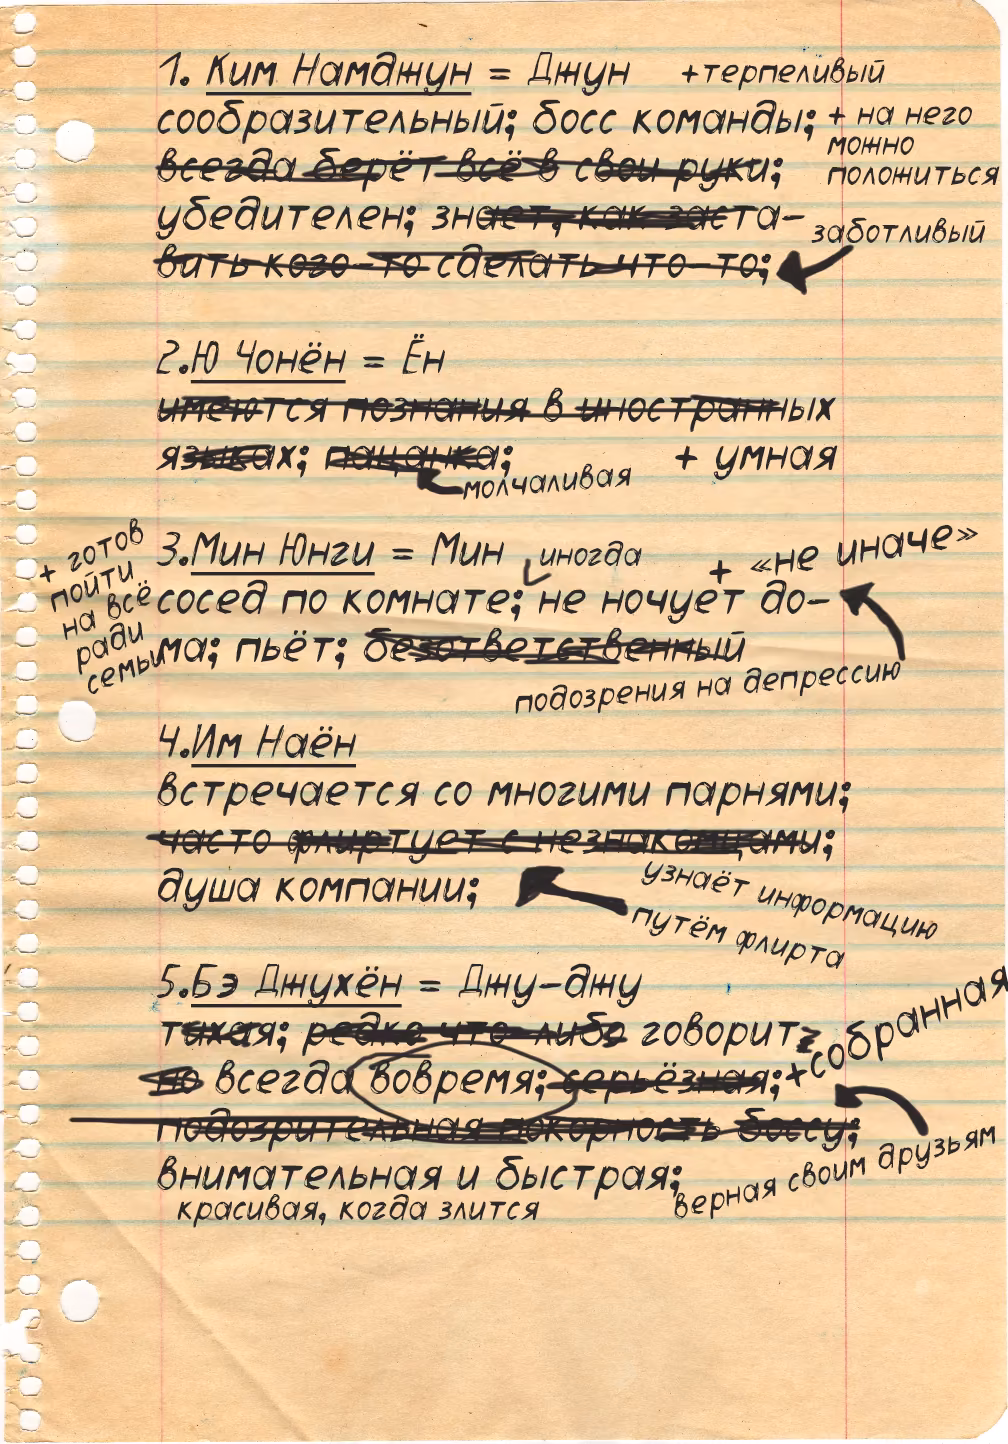 1. Ким Намджун = Джун +терпеливый
сообразительный; босс команды; + на него
можно
положиться
всегда берёт всё в свои руки;
убедителен; знает, как заста-
заботливый
вить кого-то сделать что-то;
2.Ю Чонён = Ён
имеются познания в иностранных
языках; пацанка; + умная
молчаливая
+ готов
пойти
на всё
ради
семьи
3.Мин Юнги = Мин иногда + «не иначе»
сосед по комнате; не ночует до-
ма; пьёт; безответственный
подозрения на депрессию
4.Им Наён
встречается со многими парнями;
часто флиртует с незнакомцами;
душа компании;
узнаёт информацию
путём флирта
5.Бэ Джухён = Джу-джу
тихая; редко что-либо говорит,
но всегда вовремя; серьёзная; +собранная
подозрительная покорность боссу;
внимательная и быстрая;
верная своим друзьям
красивая, когда злится